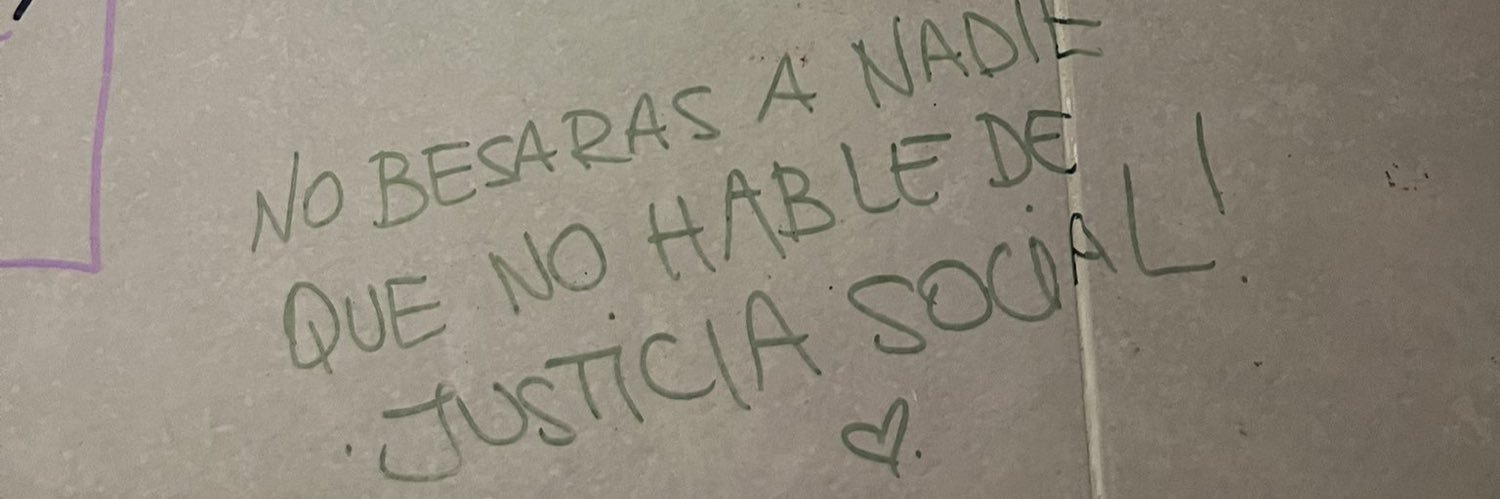 NO BESARAS A NADIE
QUE NO HABLE DE
JUSTICIA SOCIAL!